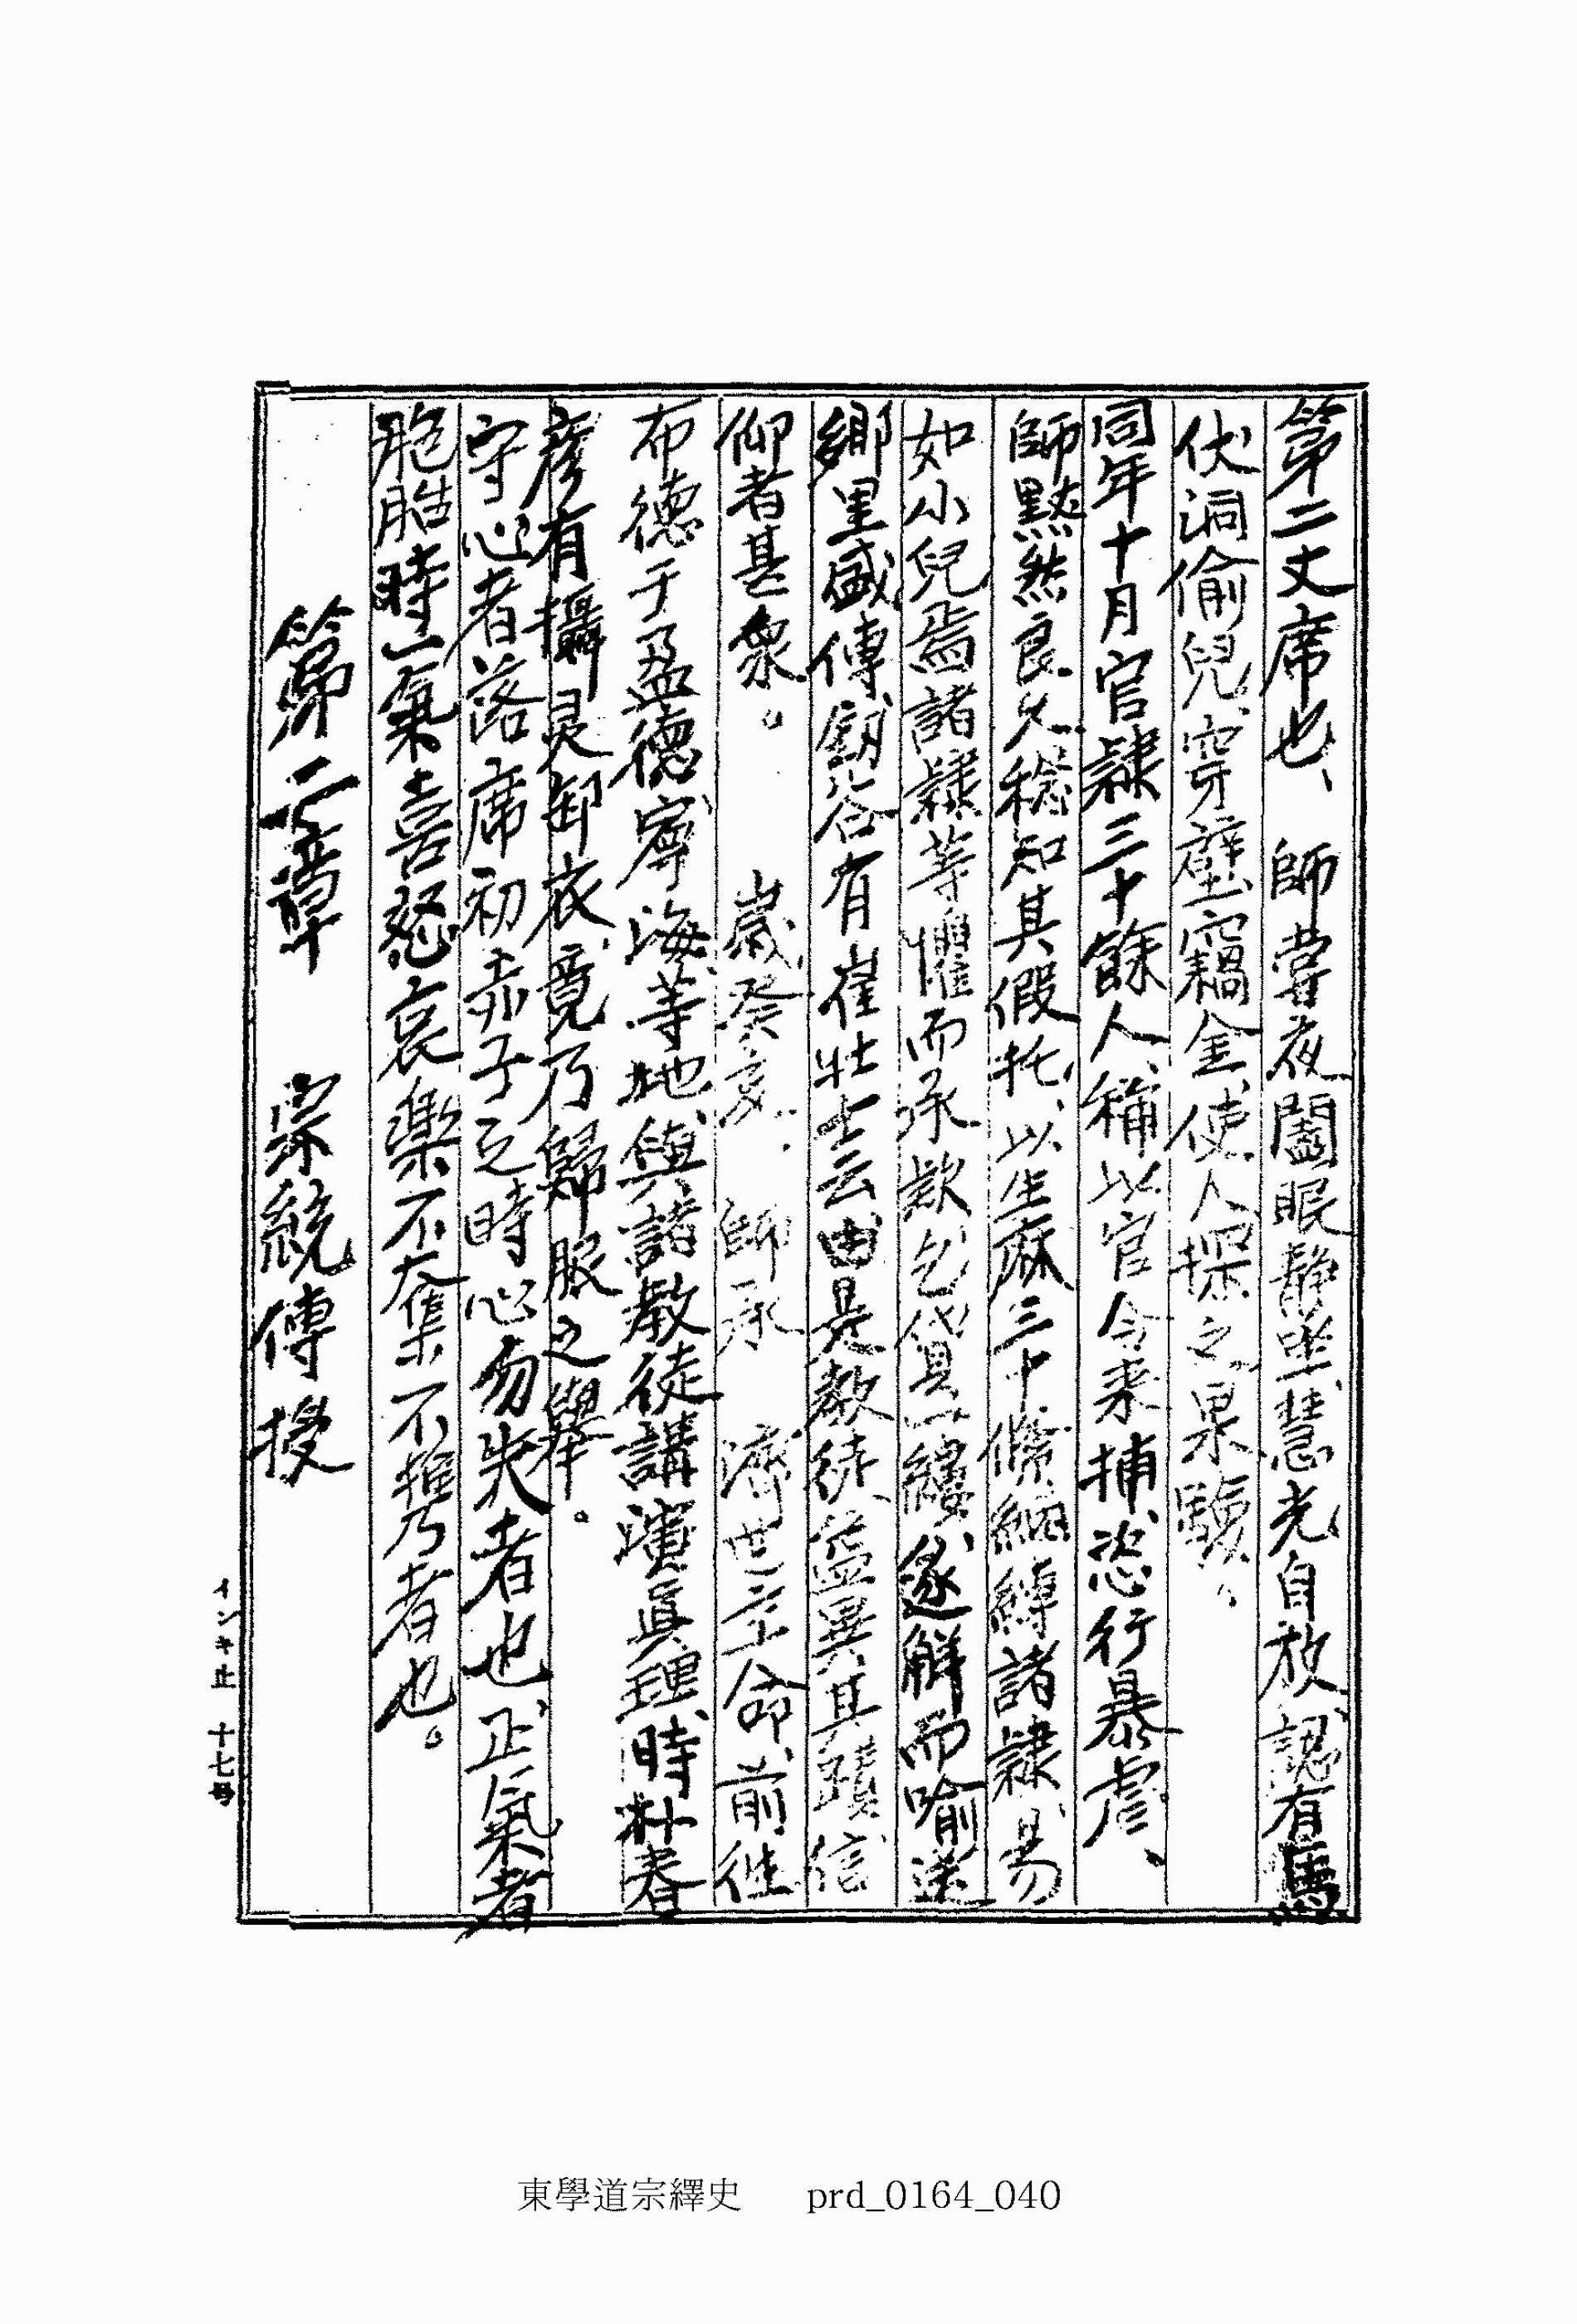 第二丈席也、師嘗夜闔眠靜坐慧光自放、認有馬
伏洞偷兒、穿壁竊金、使人探之、果驗、
同年十月官隸三十餘人、稱以官令来捕、恣行暴虐、
師黙然良久、稔知其假托、以生麻三十條絪縛諸隸、易
如小兒焉、諸隸等懼而承欵乞貸一縷、遂解而喻送
鄉里盛傳釰谷有崔壯士云、由是教徒、益異其蹟、信
仰者甚衆。歲癸亥、師承濟世主命、前往
布德于盈德、寧海等地、與諸教徒講演眞理、時朴春
彦有攝灵卸衣、竟乃歸服之舉。
守心者落席初赤子之時心勿失者也、正氣者
胞胎時一氣喜怒哀樂不奪不携乃者也。
第二章 宗統傳授
インキ止 十七号
東學道宗繹史 prd_0164_040